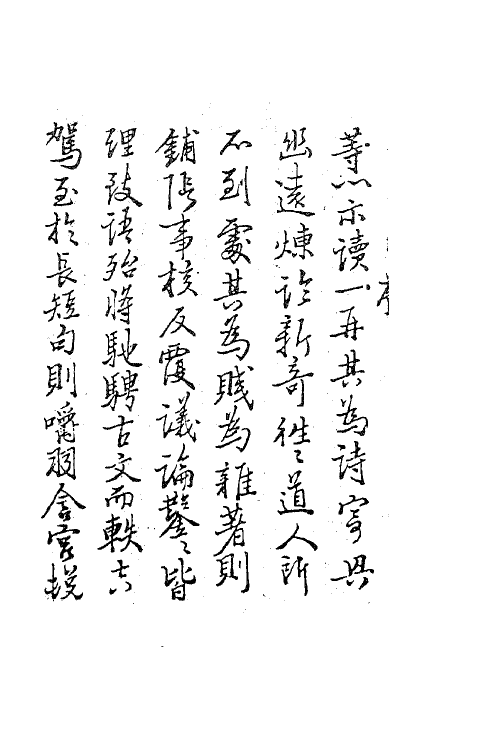 序
以示讀一再其為詩寄興
幽遠煉新奇往〻道人所
不到處其為賤為雜著則
鋪張事核反覆議論鑿〻皆
理致語殆將馳騁古文而軼
駕至於長短句則嚼羽含宮